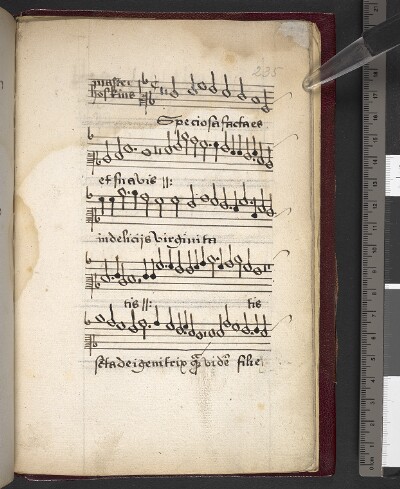 235
master
hoskins
Speciosa facta es
et suavis ||:
in delicijs virginita
tis ||: tis
scta dei genitrix vide filie